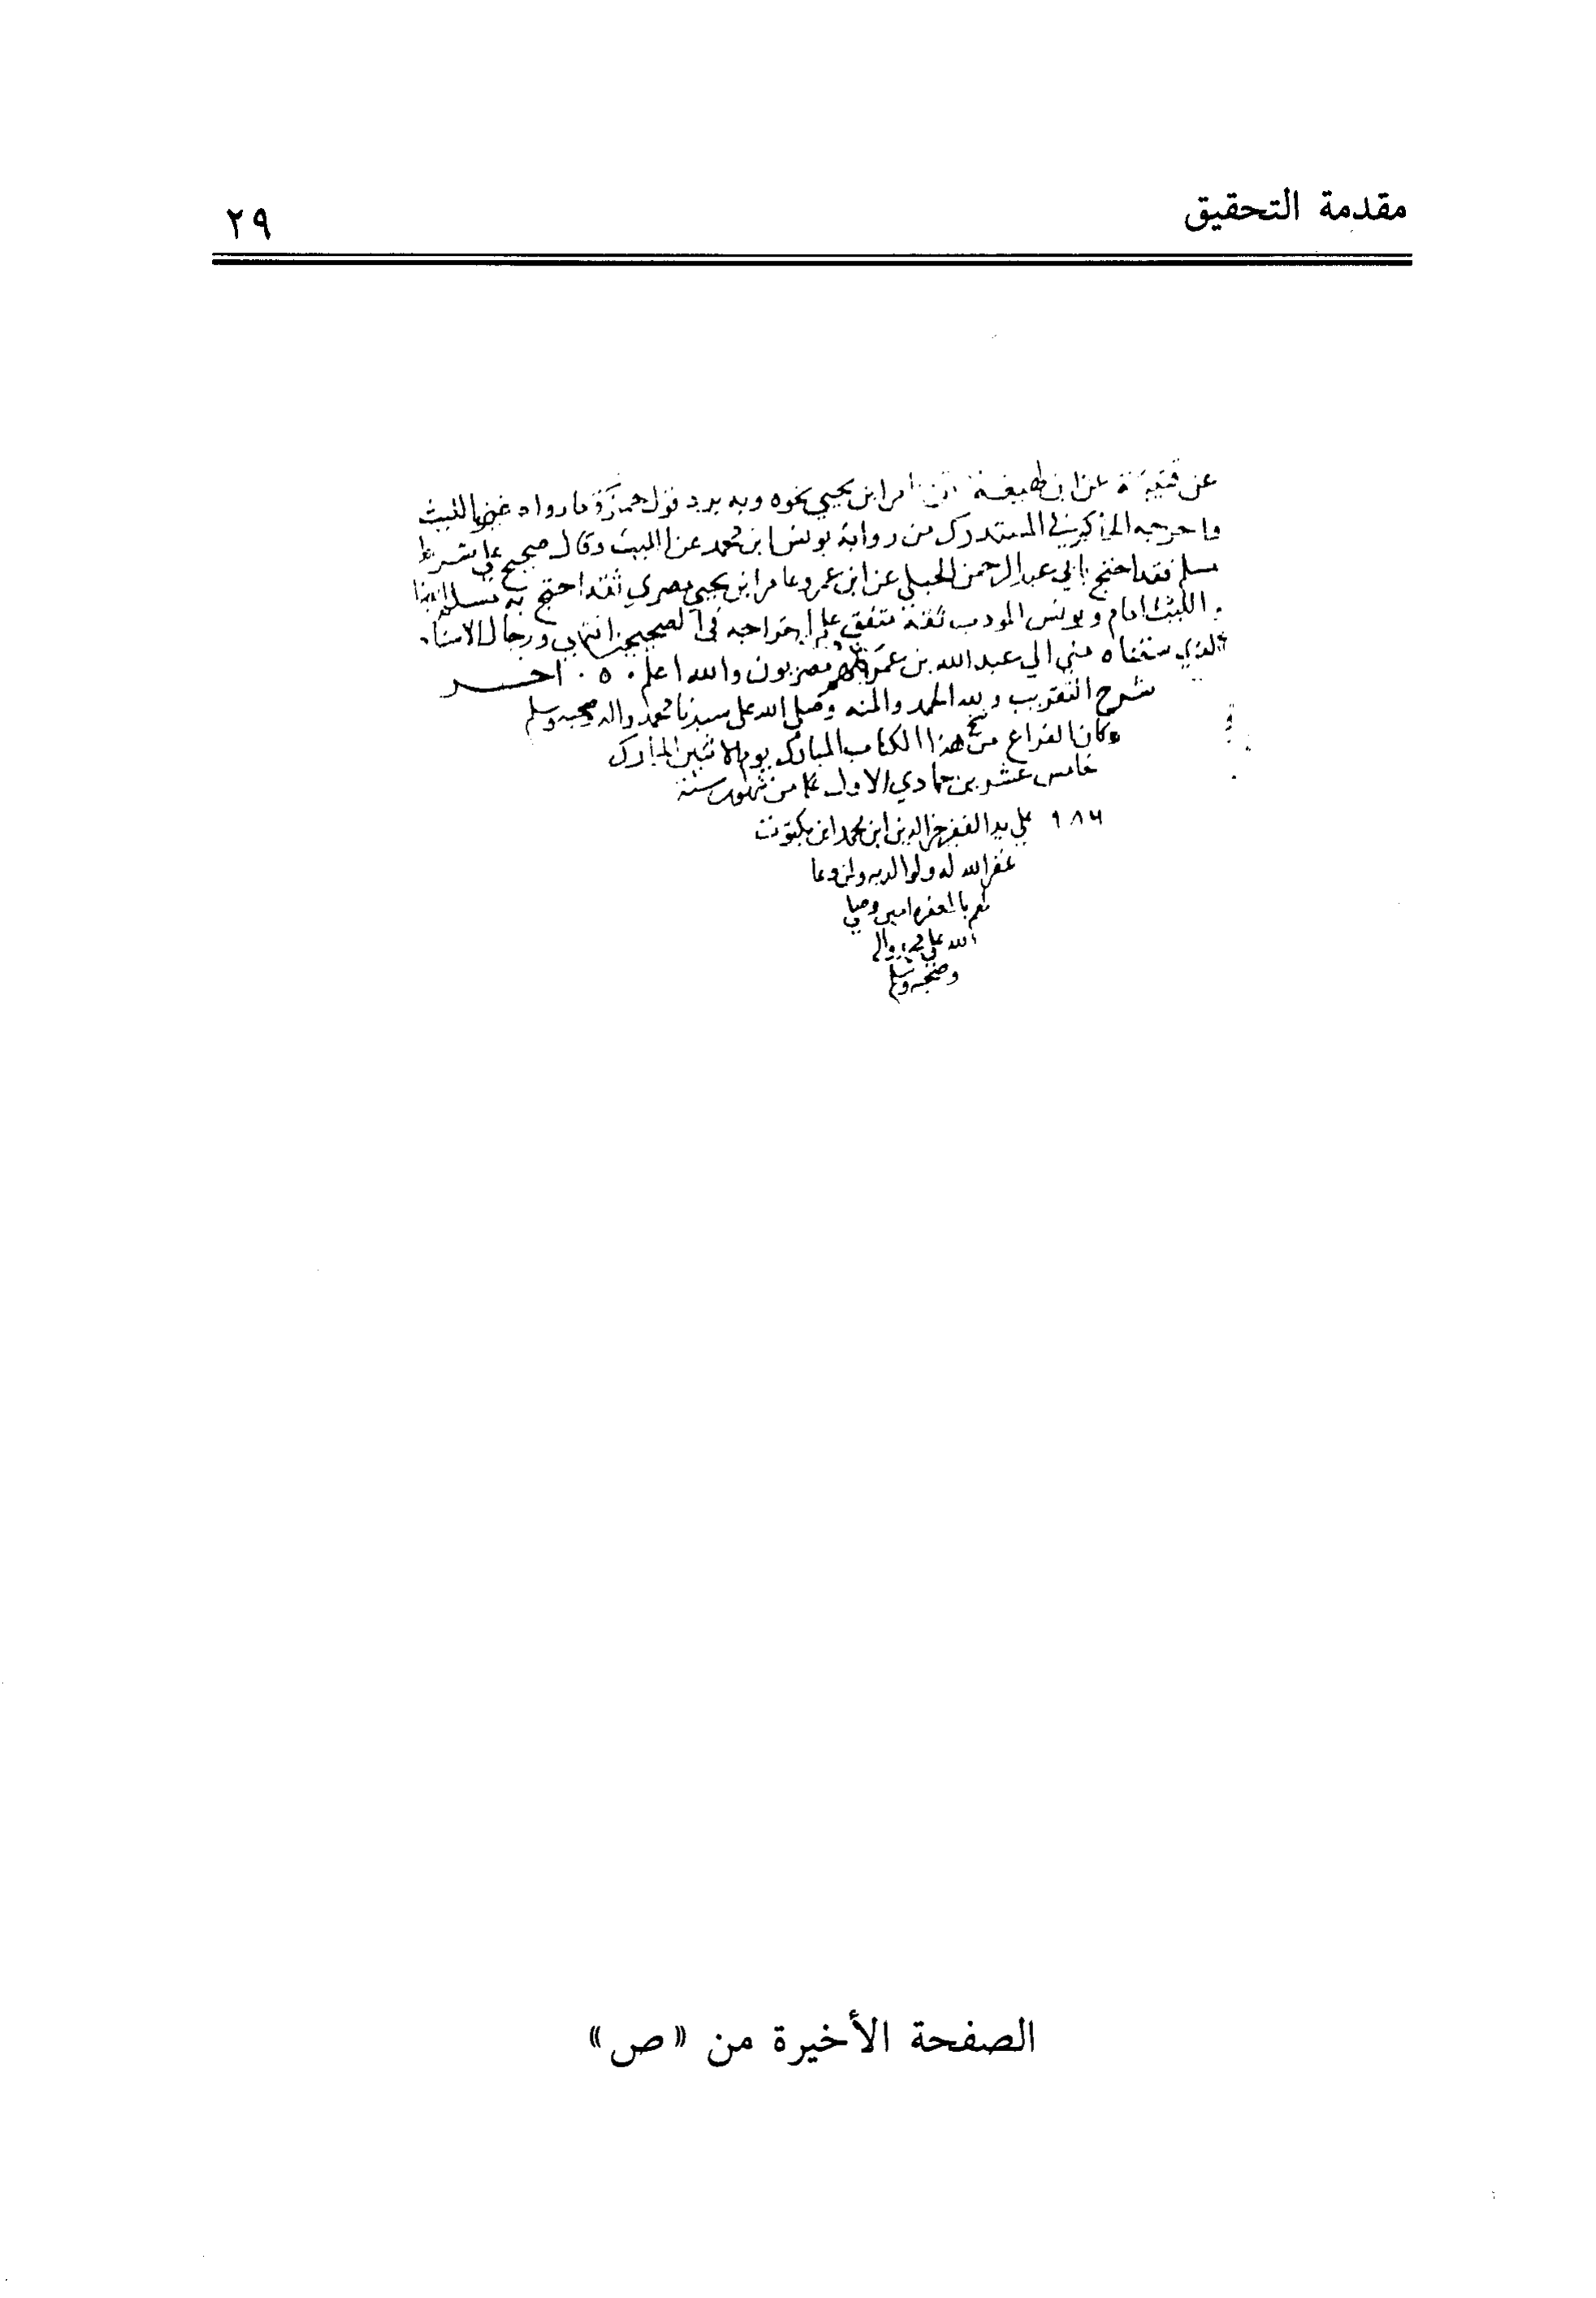 مقدمة التحقيق
٢٩
عن قتيبة عن ابن لهيعة عن عامر ابن يحيي نحوه وبه يرد قول حمزة ما رواه غير الليث
واخرجه الحاكم في المستدرك من رواية يونس ابن محمد عن الليث وقال صحيح على شرط
مسلم فقد احتج بابي عبد الرحمن الحبلي عن ابن عمرو وعامر ابن يحيي مصري ثقة احتج به مسلم ايضا
والليث امام ويونس المودب ثقة متفق على اخراجه في الصحيحين انتهي ورجال الاسناد
الذي سقناه مني الي عبد الله بن عمرو كلهم مصريون والله اعلم ٠ ٥ ٠ اخر
شرح التقريب ولله الحمد والمنه وصلى الله على سيدنا محمد واله وصحبه وسلم
وكان الفراغ من نسخ هذا الكتاب المبارك يوم الاثنين المبارك
خامس عشر من جمادي الاول من شهور سنة
٩٨٦ علي يد الفقير ابن محمد ابن
غفر الله له ولوالديه ولمن دعا
لهم بالمغفره امين وصلي
الله على محمد واله
وصحبه وسلم
الصفحة الأخيرة من «ص»